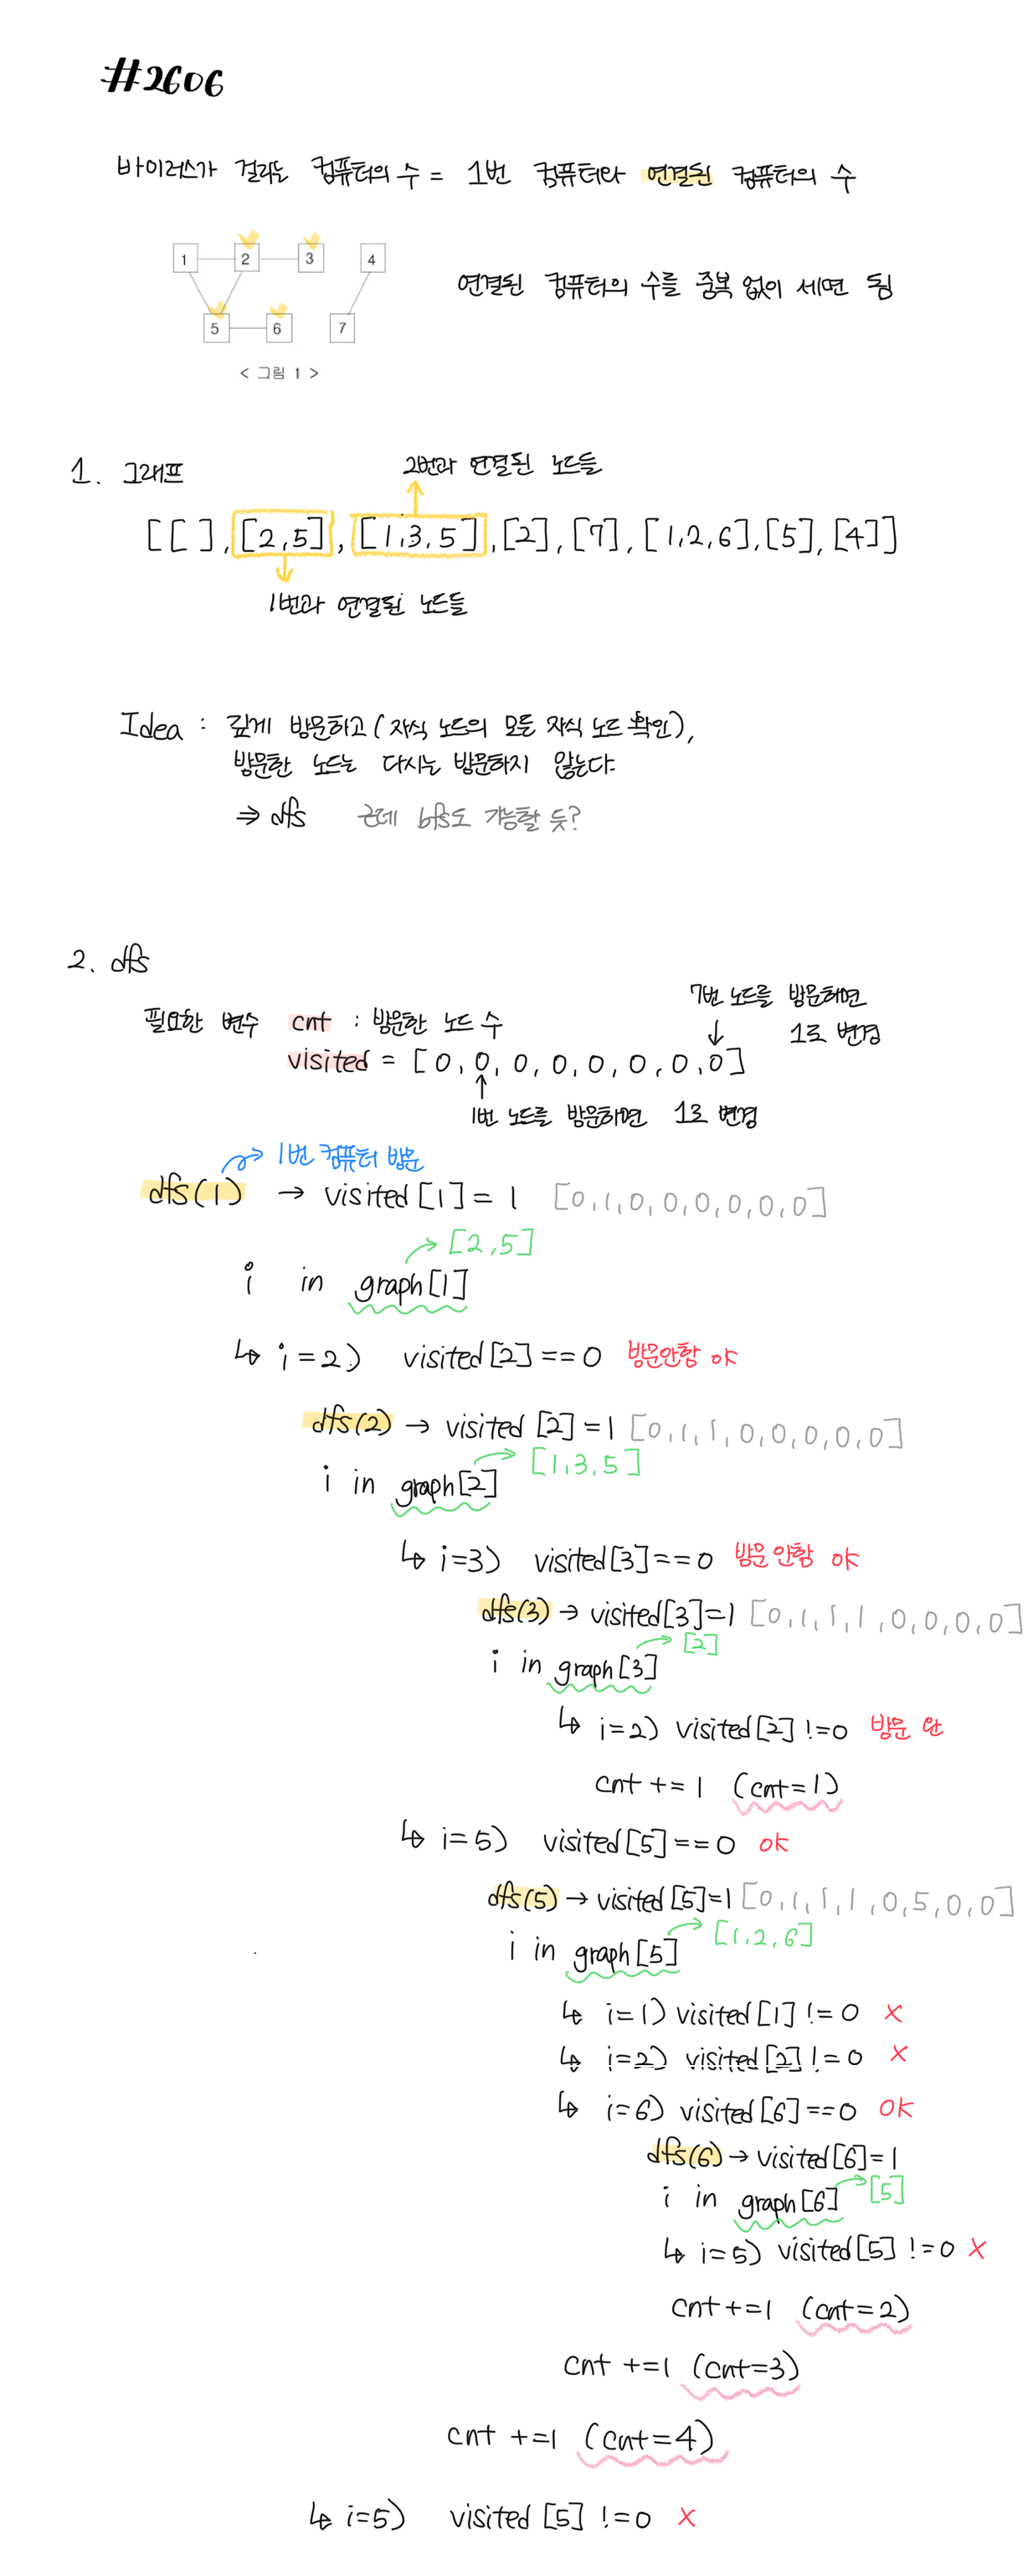 #2606
바이러스가 걸리는 컴퓨터의 수 = 1번 컴퓨터와 연결된 컴퓨터의 수
1 2 3 4
5 6 7
< 그림 1 >
연결된 컴퓨터의 수를 중복 없이 세면 됨
1. 그래프
2번과 연결된 노드들
[[ ], [2,5], [1,3,5], [2], [7], [1,2,6], [5], [4]]
1번과 연결된 노드들
Idea : 깊게 방문하고 (자식 노드의 모든 자식 노드 확인),
방문한 노드는 다시는 방문하지 않는다.
⇒ dfs 근데 bfs도 가능할 듯?
2. dfs
7번 노드를 방문하면
1로 변경
필요한 변수 cnt : 방문한 노드 수
visited = [0, 0, 0, 0, 0, 0, 0, 0]
1번 노드를 방문하면 1로 변경
1번 컴퓨터 방문
dfs(1) → visited[1] = 1 [0,1,0,0,0,0,0,0]
[2,5]
i in graph[1]
↳ i=2) visited[2]==0 방문안함 ok
dfs(2) → visited [2]=1 [0,1,1,0,0,0,0,0]
[1,3,5]
i in graph[2]
↳ i=3) visited[3]==0 방문 안함 ok
dfs(3) → visited[3]=1 [0,1,1,1,0,0,0,0]
[2]
i in graph[3]
↳ i=2) visited[2] !=0 방문 완
cnt += 1 (cnt=1)
↳ i=5) visited[5]==0 ok
dfs(5) → visited[5]=1 [0,1,1,1,0,5,0,0]
[1,2,6]
i in graph[5]
↳ i=1) visited[1] !=0 x
↳ i=2) visited[2] !=0 x
↳ i=6) visited[6]==0 OK
dfs(6) → visited[6]=1
[5]
i in graph[6]
↳ i=5) visited[5] !=0 x
cnt +=1 (cnt=2)
cnt +=1 (cnt=3)
cnt +=1 (cnt=4)
↳ i=5) visited [5] !=0 x